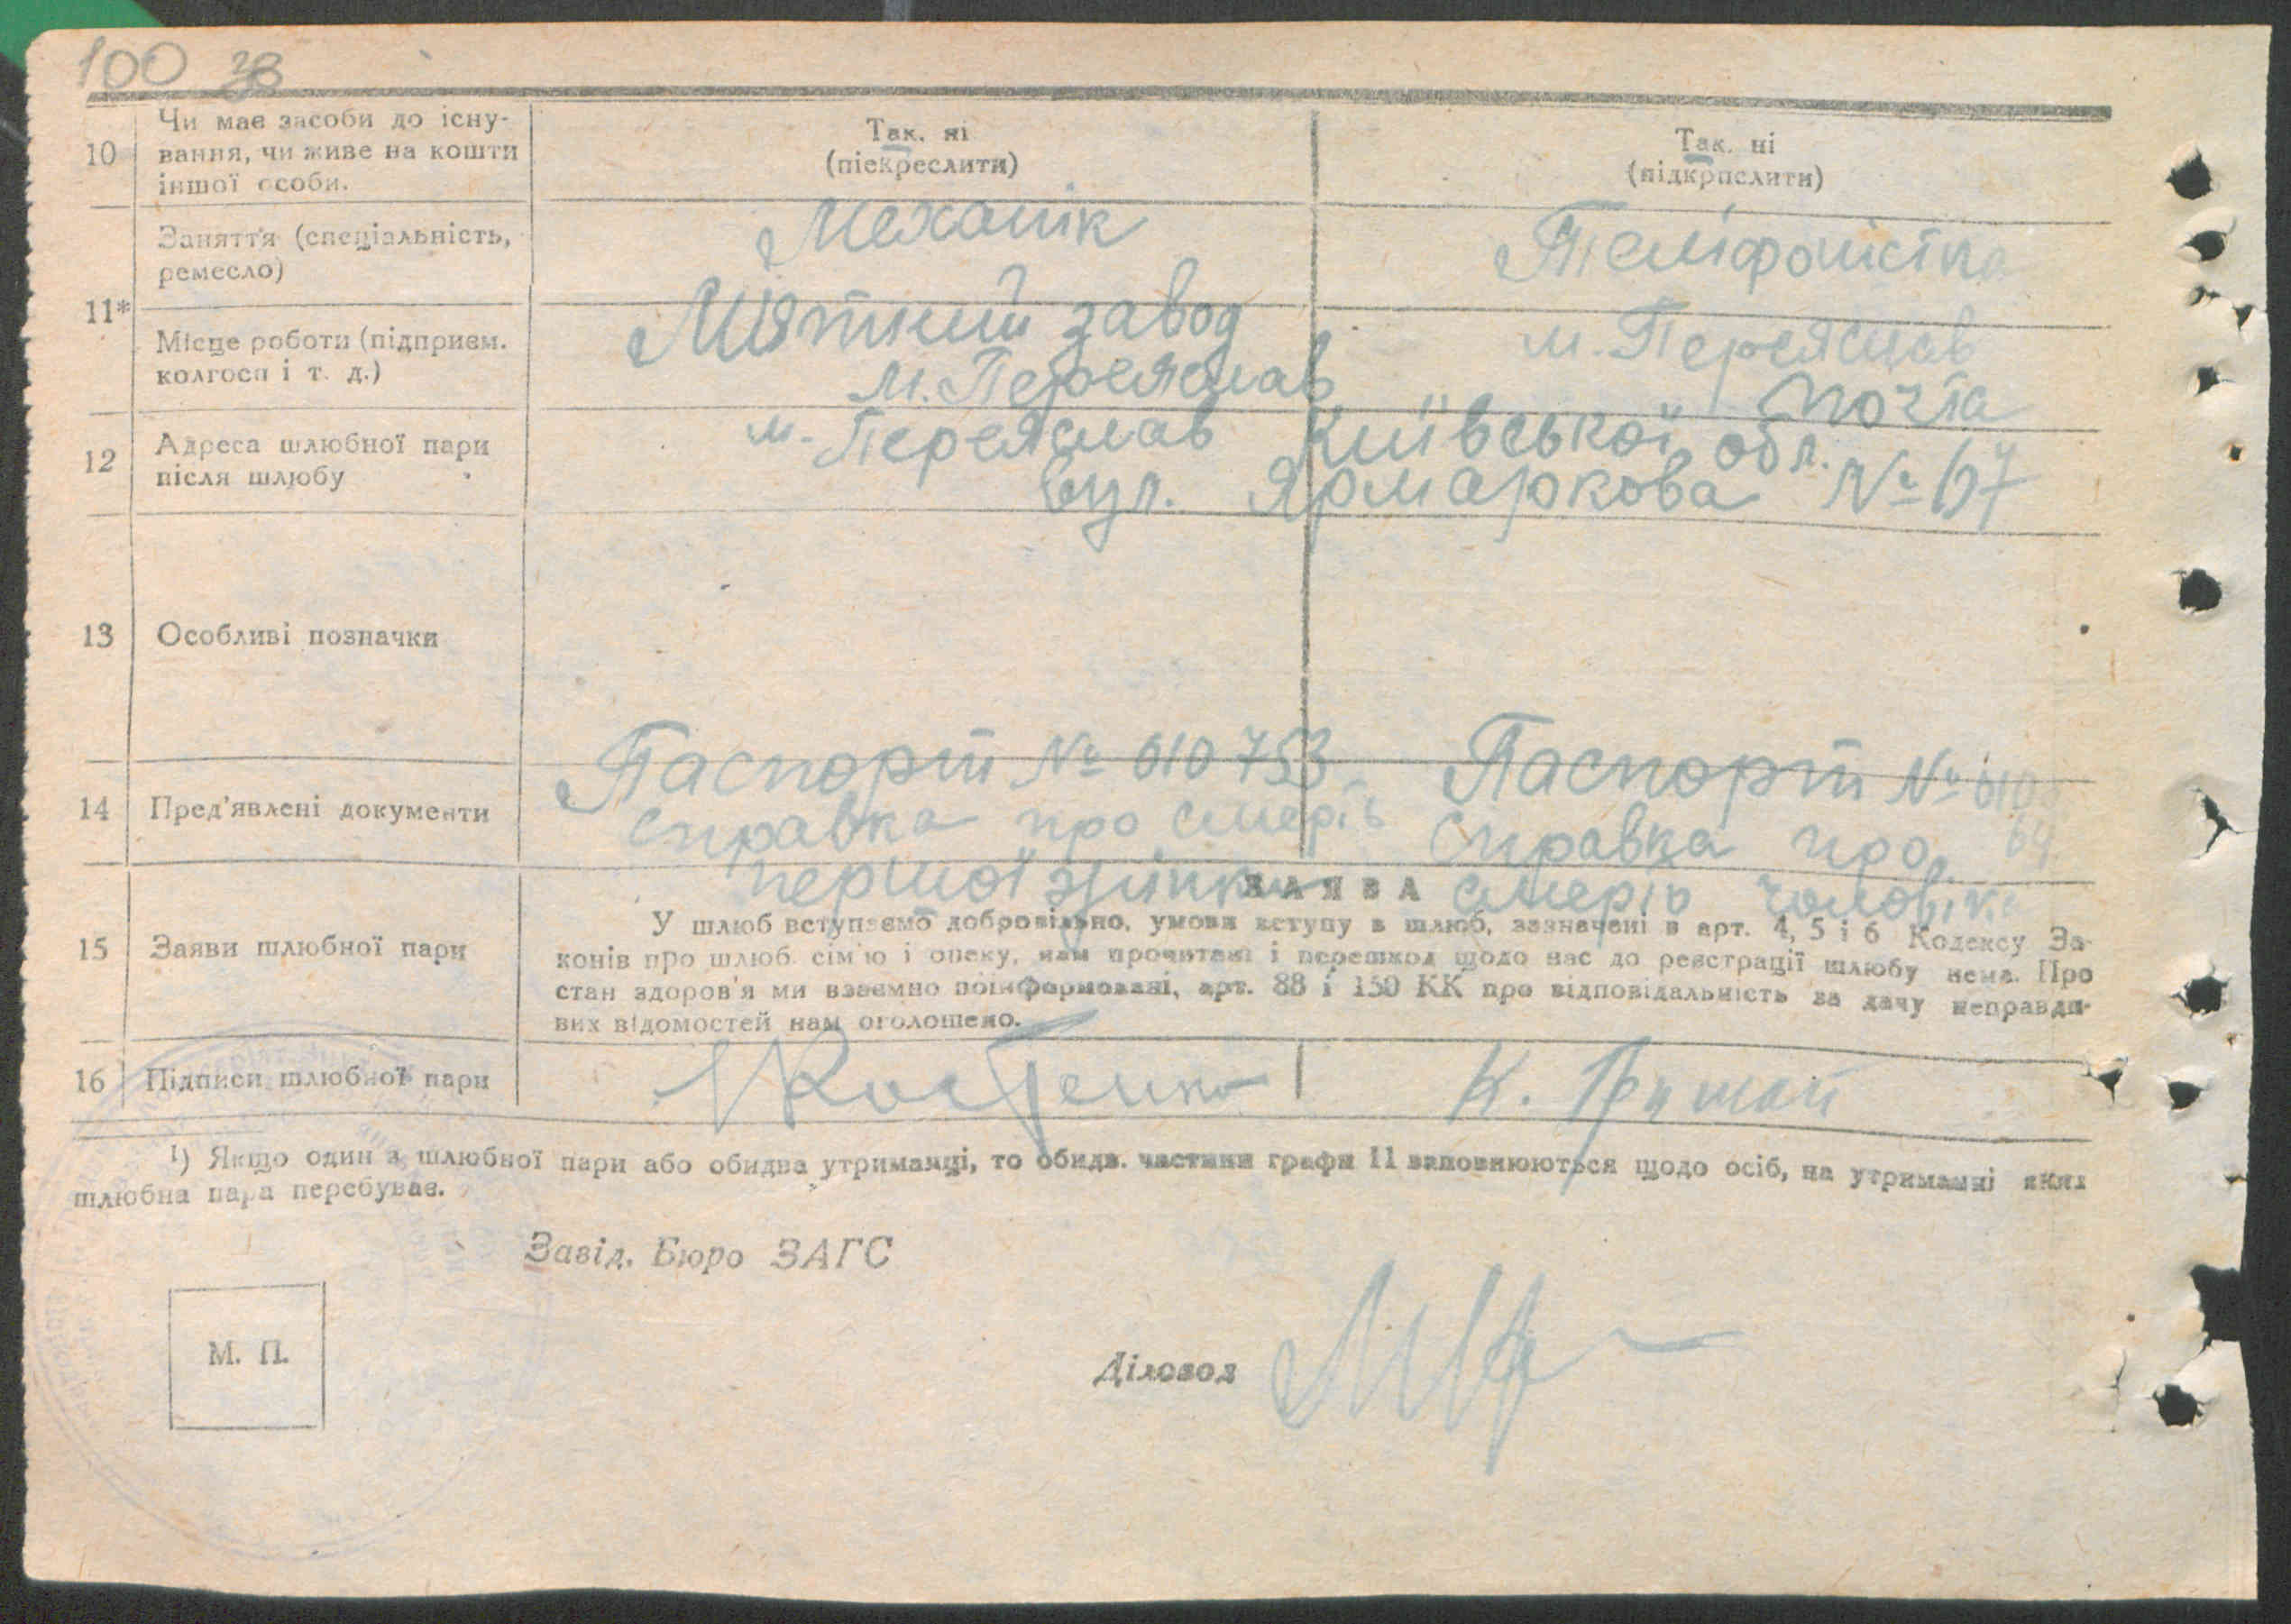 100 зв
10 Чи має засоби до існу-
вання, чи живе на кошти
іншої особи.
Так, ні
(піекреслити)
Так, ні
(підкрпслити)
11*
Заняття (спеціальність,
ремесло)
Механік
Теліфоністка
Місце роботи (підприєм.
колгосп і т. д.)
Мʼяткий завод
м. Переяслав
м. Переяслав
почта
12 Адреса шлюбної пари
після шлюбу
м. Переяслав Київської обл.
вул. Ярмаркова №
13 Особливі позначки
14 Пред'явлені документи
Паспорт № 610753
справка про смерть
першої жінки
Паспорт № 610
справка про
смерть чоловіка
15 Заяви шлюбної пари
ЗАЯВА
У шлюб вступаємо добровільно, умови вступу в шлюб, зазначені в арт. 4, 5 і 6 Кодексу За-
конів про шлюб. сім'ю і опеку, нам прочитані і перешкод щодо нас до реєстрації шлюбу нема. Про
стан здоров'я ми взаємно поінформовані, арт. 88 і 130 КК про відповідальність за дачу неправди-
вих відомостей нам оголошено.
16 Підписи шлюбної пари
Костенко
К. Пришай
1) Якщо один з шлюбної пари або обидва утриманці, то обидв. частини графи 11 заповнюються щодо осіб, на утриманні яких
шлюбна пара перебуває.
Завід. Бюро ЗАГС
М. П.
Діловод